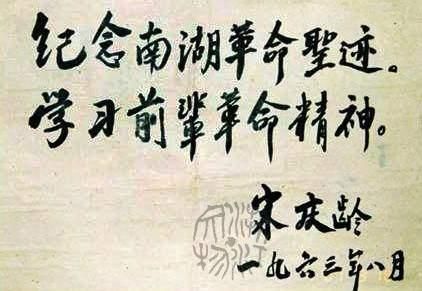 纪念南湖革命聖迹。
学习前輩革命精神。
宋庆龄
一九六三年八月
浙江文物